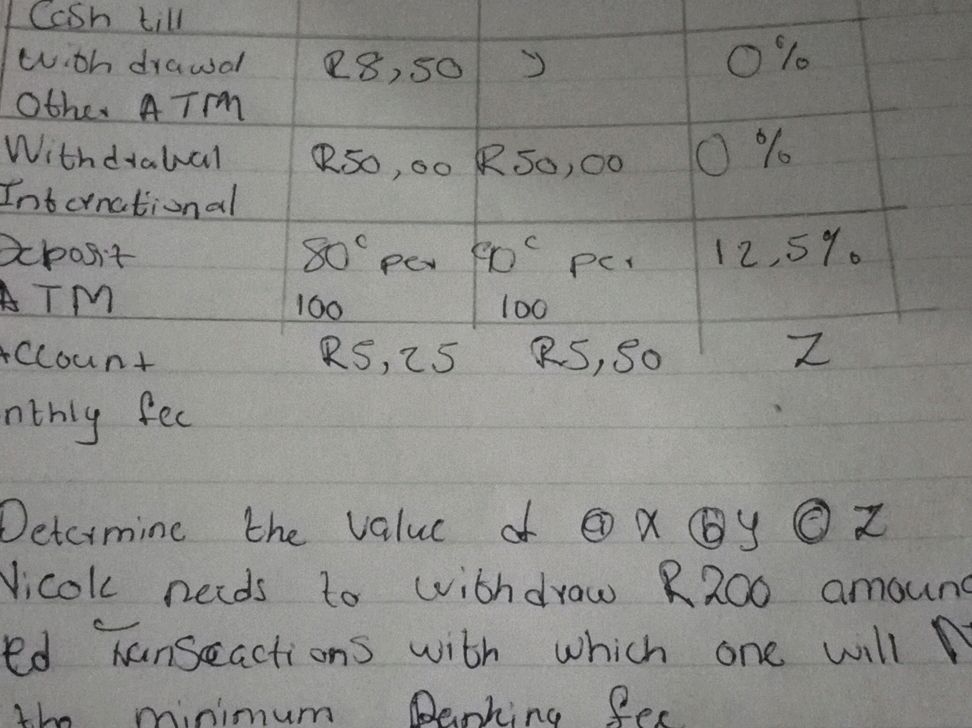 Cash till
Withdrawal R8,50 y 0%
Other ATM
Withdrawal R50,00 R50,00 0%
International
Deposit 80c per 90c per 12,5%
ATM 100 100
Account R5,25 R5,50 Z
nthly fee
Determine the value of (a) x (b) y (c) Z
Nicole needs to withdraw R200 amoun
ed transeactions with which one will
the minimum Banking fee